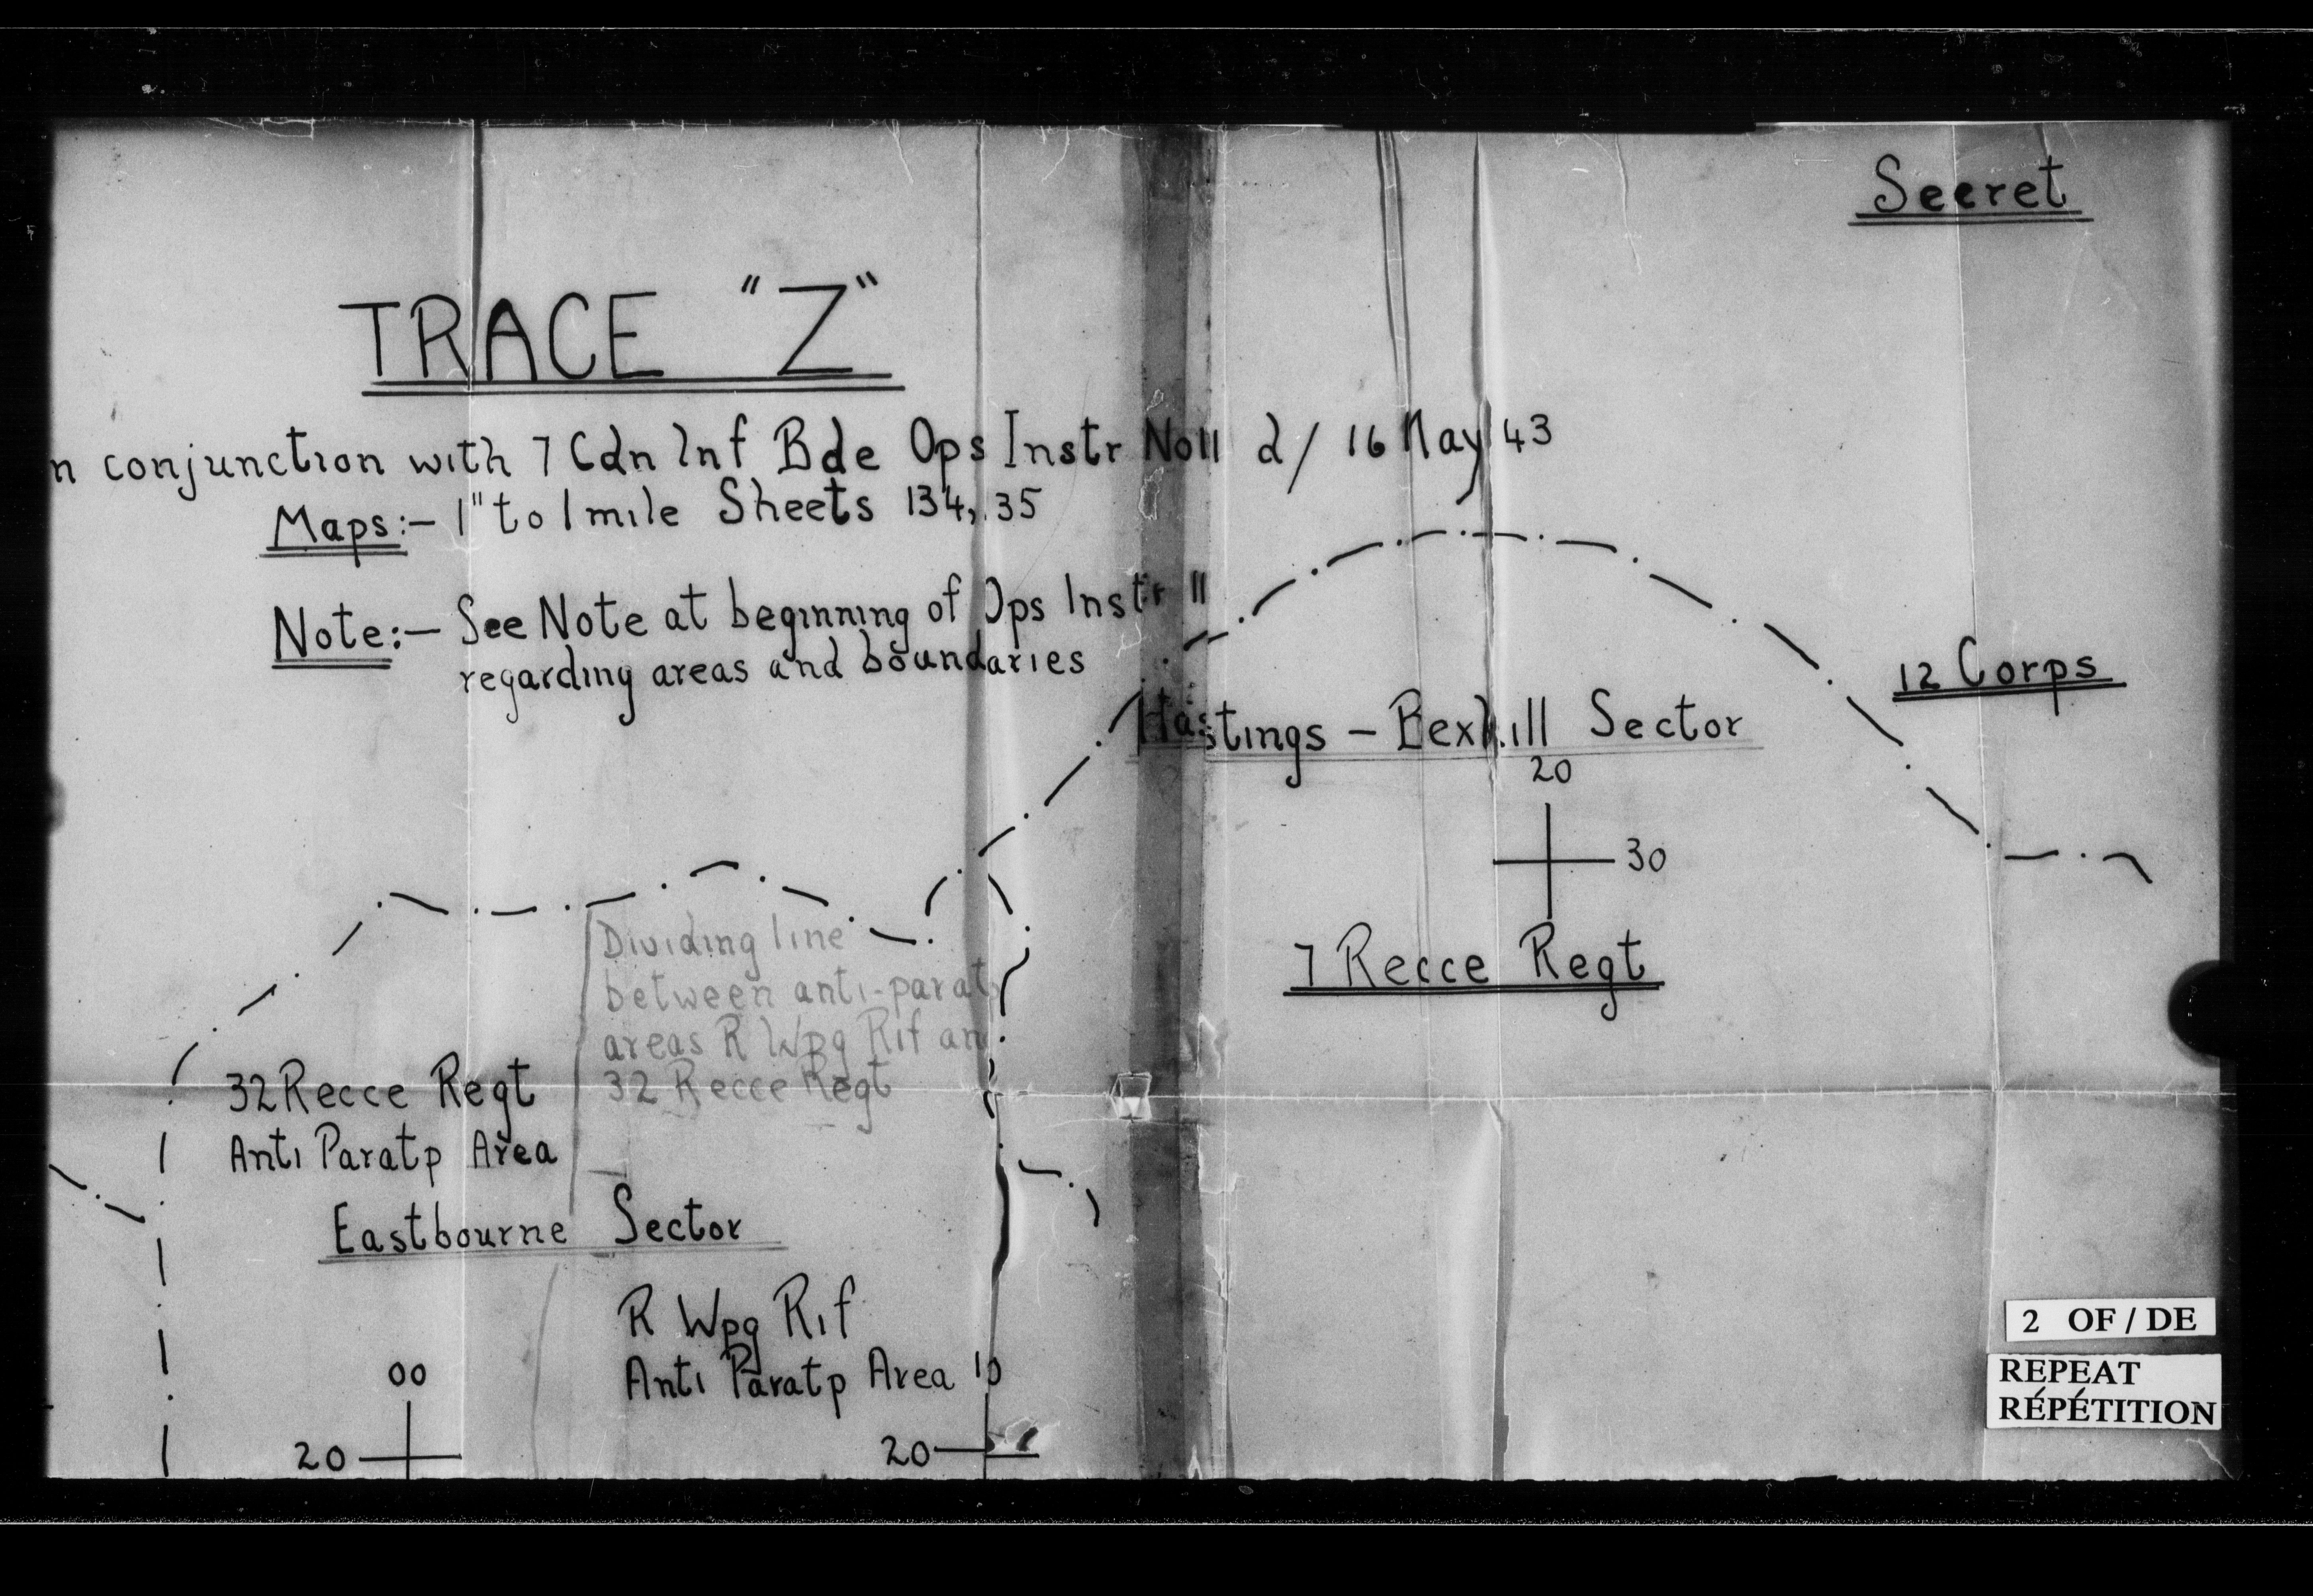 Secret
TRACE "Z"
n conjunction with 7 Cdn Inf Bde Ops Instr No11 d/ 16 May 43
Maps:- 1" to 1 mile Sheets 134, 135
Note:- See Note at beginning of Ops Instr 11
regarding areas and boundaries
12 Corps
Hastings - Bexhill Sector
20
30
7 Recce Regt
Dividing line
between anti-parat
areas R Wpg Rif an
32 Recce Regt
32 Recce Regt
Anti Paratp Area
Eastbourne Sector
R Wpg Rif
Anti Paratp Area
00
20
10
20
2 OF / DE
REPEAT
RÉPÉTITION